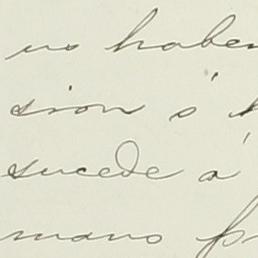 us haber
sion o'
sucede á
mano